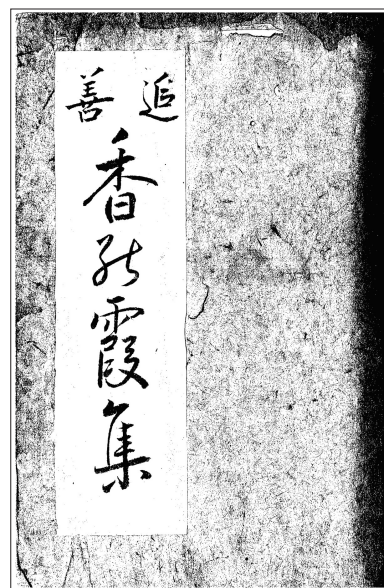 追善
香能霞集